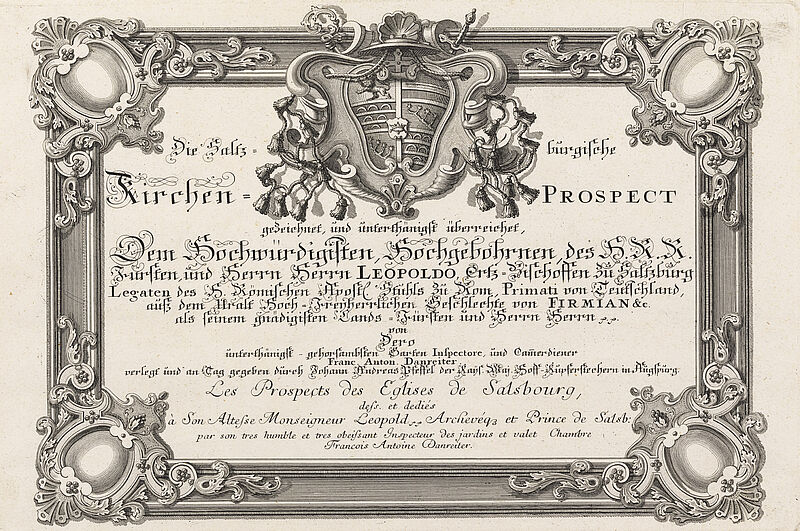 Die Saltz= bürgische
Kirchen= PROSPECT
gezeichnet, und unterthänigst überreichet,
Dem Hochwürdigisten, Hochgebohrnen, des H. R. R.
Fürsten, und Herrn Herrn LEOPOLDO, Ertz-Bischoffen zu Saltzburg
Legaten des H. Römischen Apost. Stuhls zu Rom, Primati von Teutschland,
auß dem Uralt Hoch-Freyherrlichen Geschlechte von FIRMIAN &c.
als seinem gnädigisten Lands-Fürsten und Herrn Herrn
von
Dero
unterthänigst-gehorsambsten Garten Inspectore, und Camerdiener
Franc. Anton. Danreiter.
verlegt und an Tag gegeben durch Johann Andreas Pfeffel der Kays. Maj. Hoff-Kupferstechern in Augspurg.
Les Prospects des Eglises de Salsbourg,
dess. et dediés
à Son Altesse Monseigneur Leopold Archevéq; et Prince de Salsb.
par son tres humble et tres obeissant Inspecteur des jardins et valet Chambre
François Antoine Danreiter.